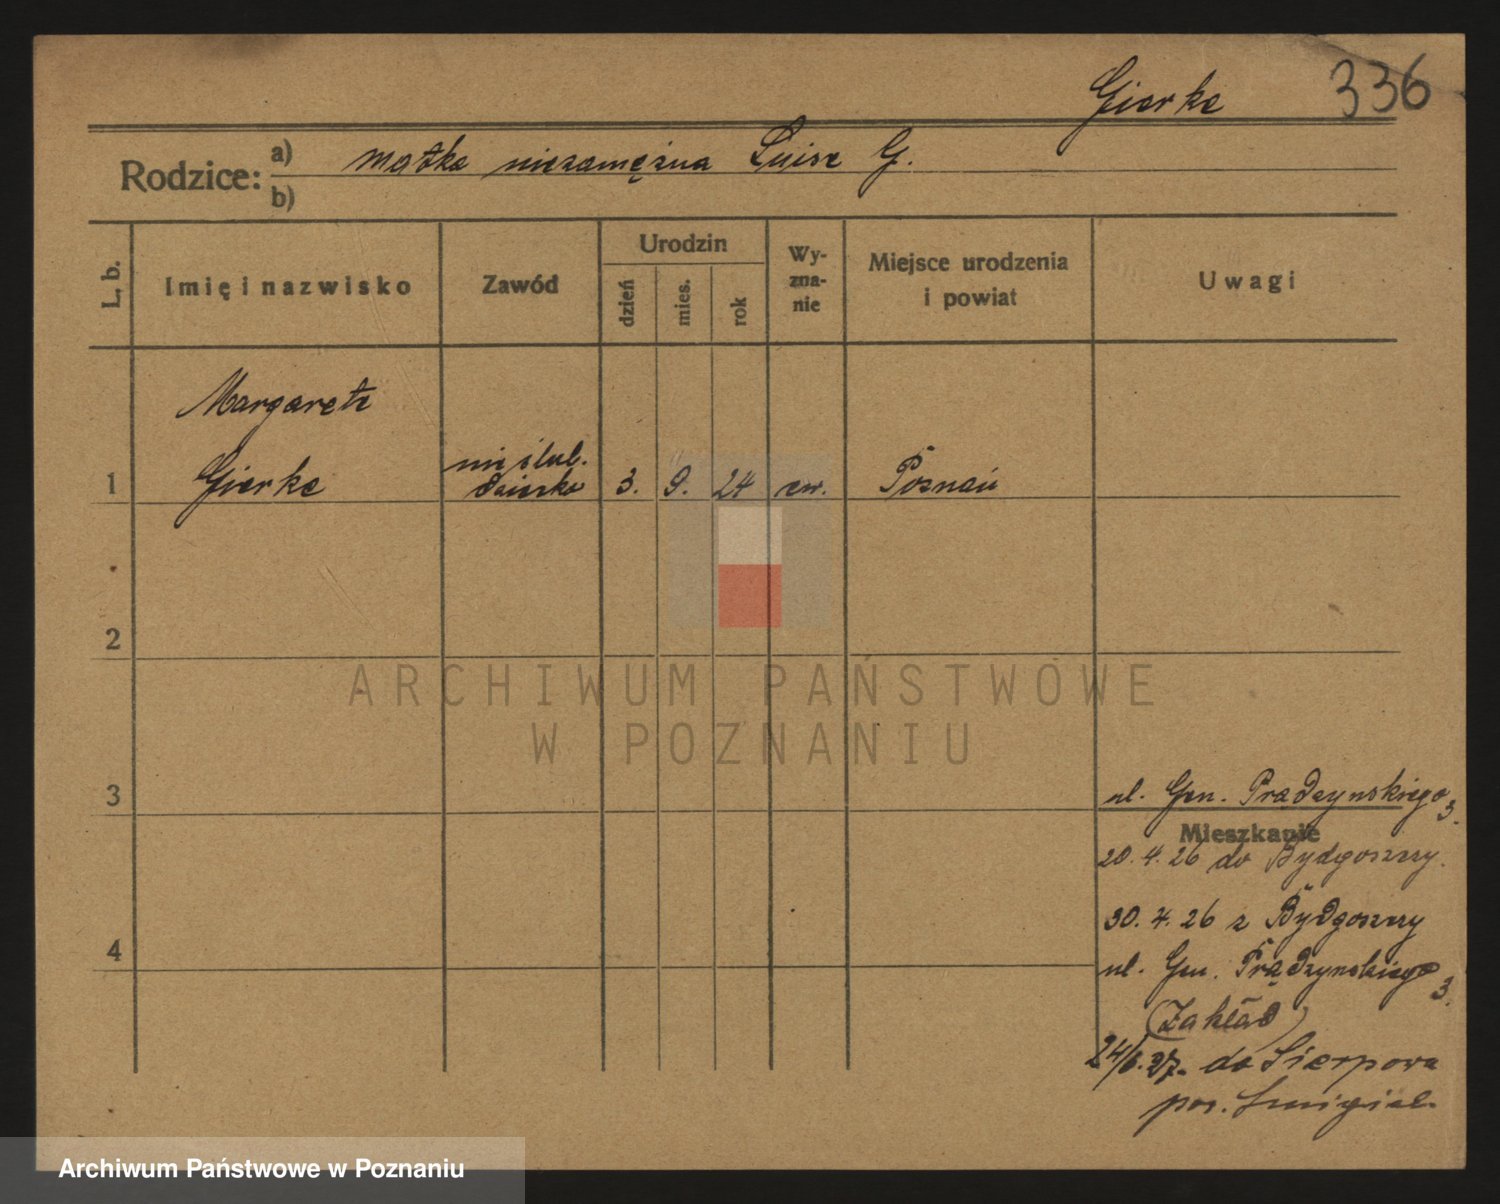 Gierke 336
Rodzice: a) matka niezamężna Luise G.
b)
L. b.
Imię i nazwisko
Zawód
Urodzin
dzień
mies.
rok
Wy-
zna-
nie
Miejsce urodzenia
i powiat
Uwagi
Margarete
1 Gierke nieślub. dziecko 3. 9. 24 ew. Poznań
2
ARCHIWUM PAŃSTWOWE
W POZNANIU
3
ul. Gen. Prądzynskiego 3.
Mieszkanie
20. 4. 26 do Bydgoszczy.
30. 4. 26 z Bydgoszczy
4
ul. Gen. Prądzynskiego 3.
(Zakład)
24/6. 27. do Sierpowa
pow. Śmigiel.
Archiwum Państwowe w Poznaniu